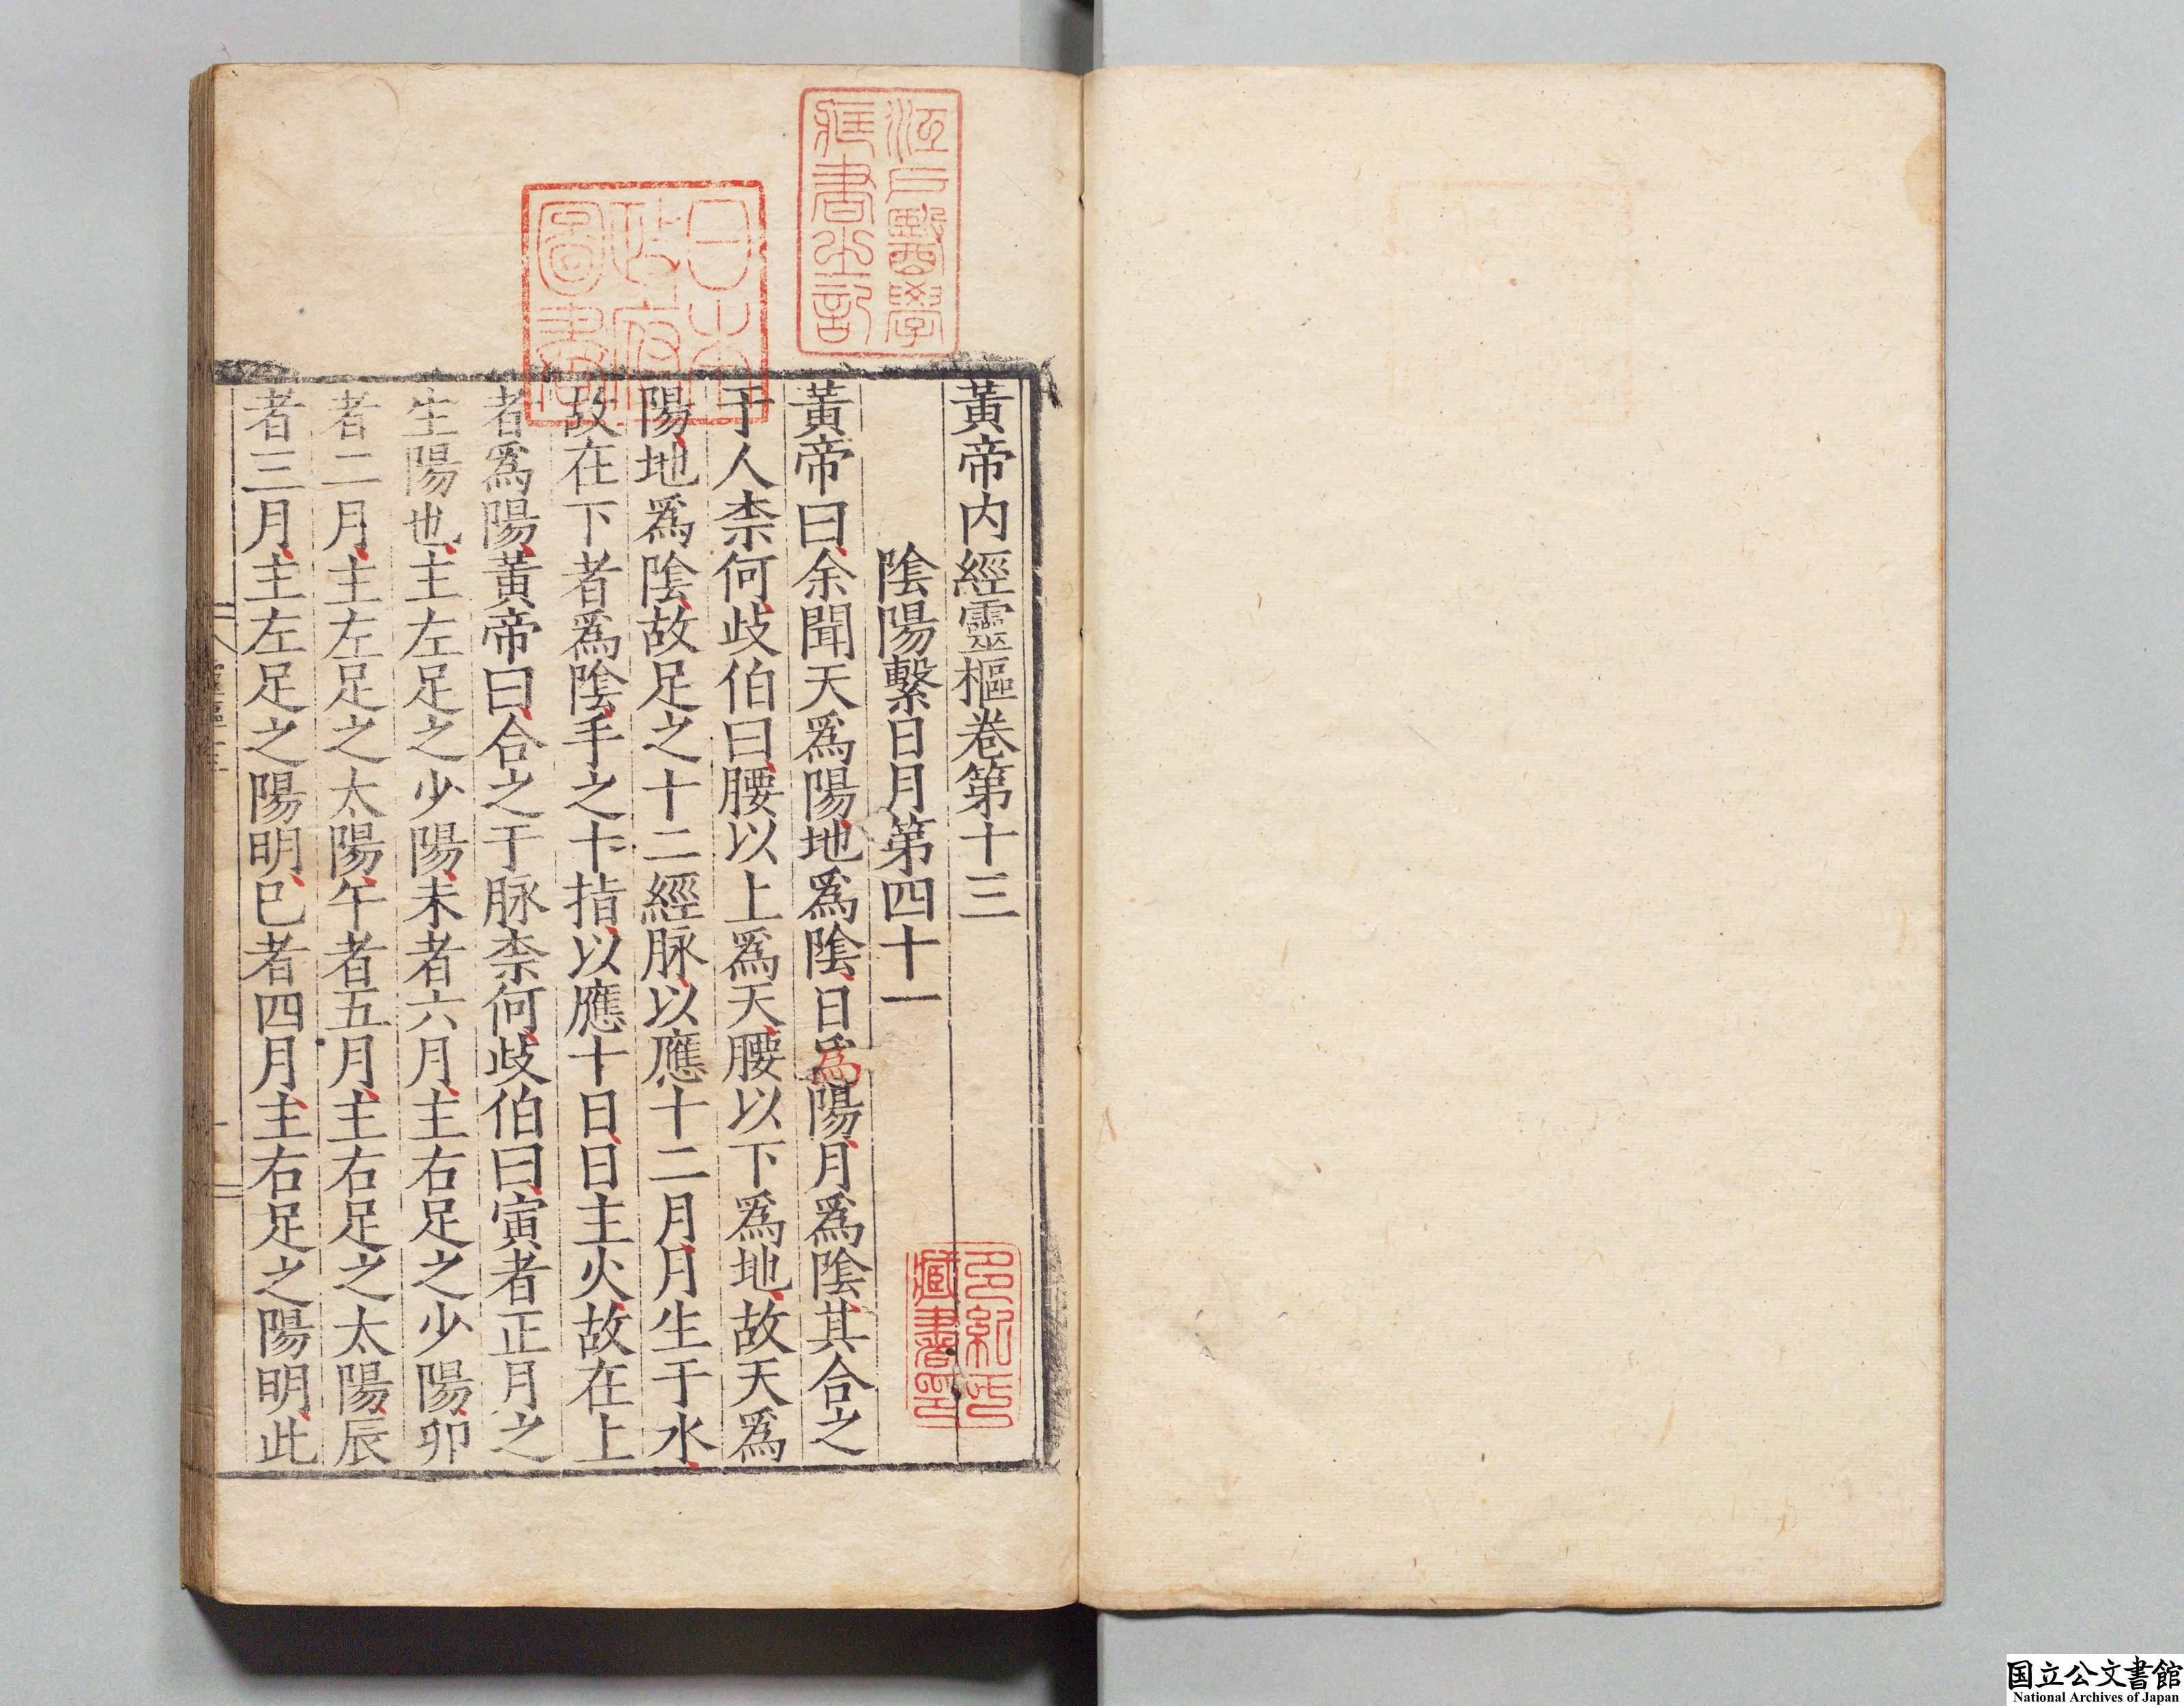 黃帝内經靈樞卷第十三
陰陽繫日月第四十一
黃帝曰余聞天爲陽地爲陰日為陽月爲陰其合之
于人柰何歧伯曰腰以上爲天腰以下爲地故天爲
陽地爲陰故足之十二經脉以應十二月月生于水
故在下者爲陰手之十指以應十日日主火故在上
者爲陽黃帝曰合之于脉柰何歧伯曰寅者正月之
生陽也主左足之少陽未者六月主右足之少陽卯
者二月主左足之太陽午者五月主右足之太陽辰
者三月主左足之陽明巳者四月主右足之陽明此
江戸醫學
藏書之記
日本
政府
圖書
多紀氏
藏書印
国立公文書館
National Archives of Japan